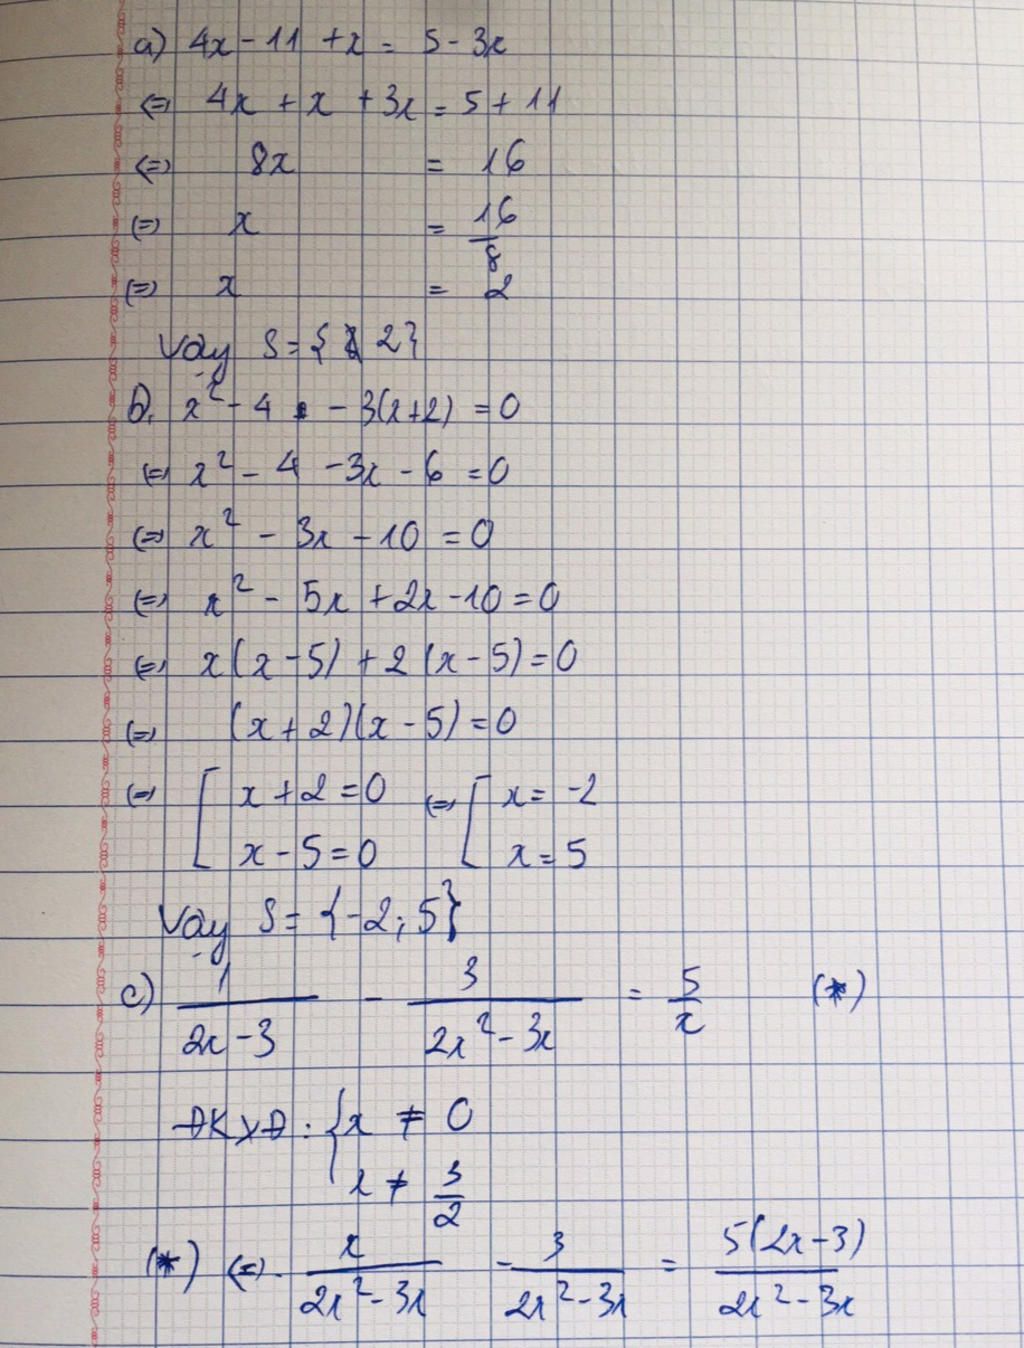 a) 4x - 11 + x = 5 - 3x
<=> 4x + x + 3x = 5 + 11
<=> 8x = 16
<=> x = 16/8
<=> x = 2
Vậy S = { 2}
b, x² - 4 - 3(x+2) = 0
<=> x² - 4 - 3x - 6 = 0
<=> x² - 3x - 10 = 0
<=> x² - 5x + 2x - 10 = 0
<=> x(x - 5) + 2(x - 5) = 0
<=> (x + 2)(x - 5) = 0
<=> [ x + 2 = 0 <=> [ x = -2
x - 5 = 0 x = 5
Vậy S = {-2; 5}
c) 1/(2x - 3) - 3/(2x² - 3x) = 5/x (*)
ĐKXĐ: { x ≠ 0
x ≠ 3/2
(*) <=> x/(2x² - 3x) - 3/(2x² - 3x) = 5(2x - 3)/(2x² - 3x)